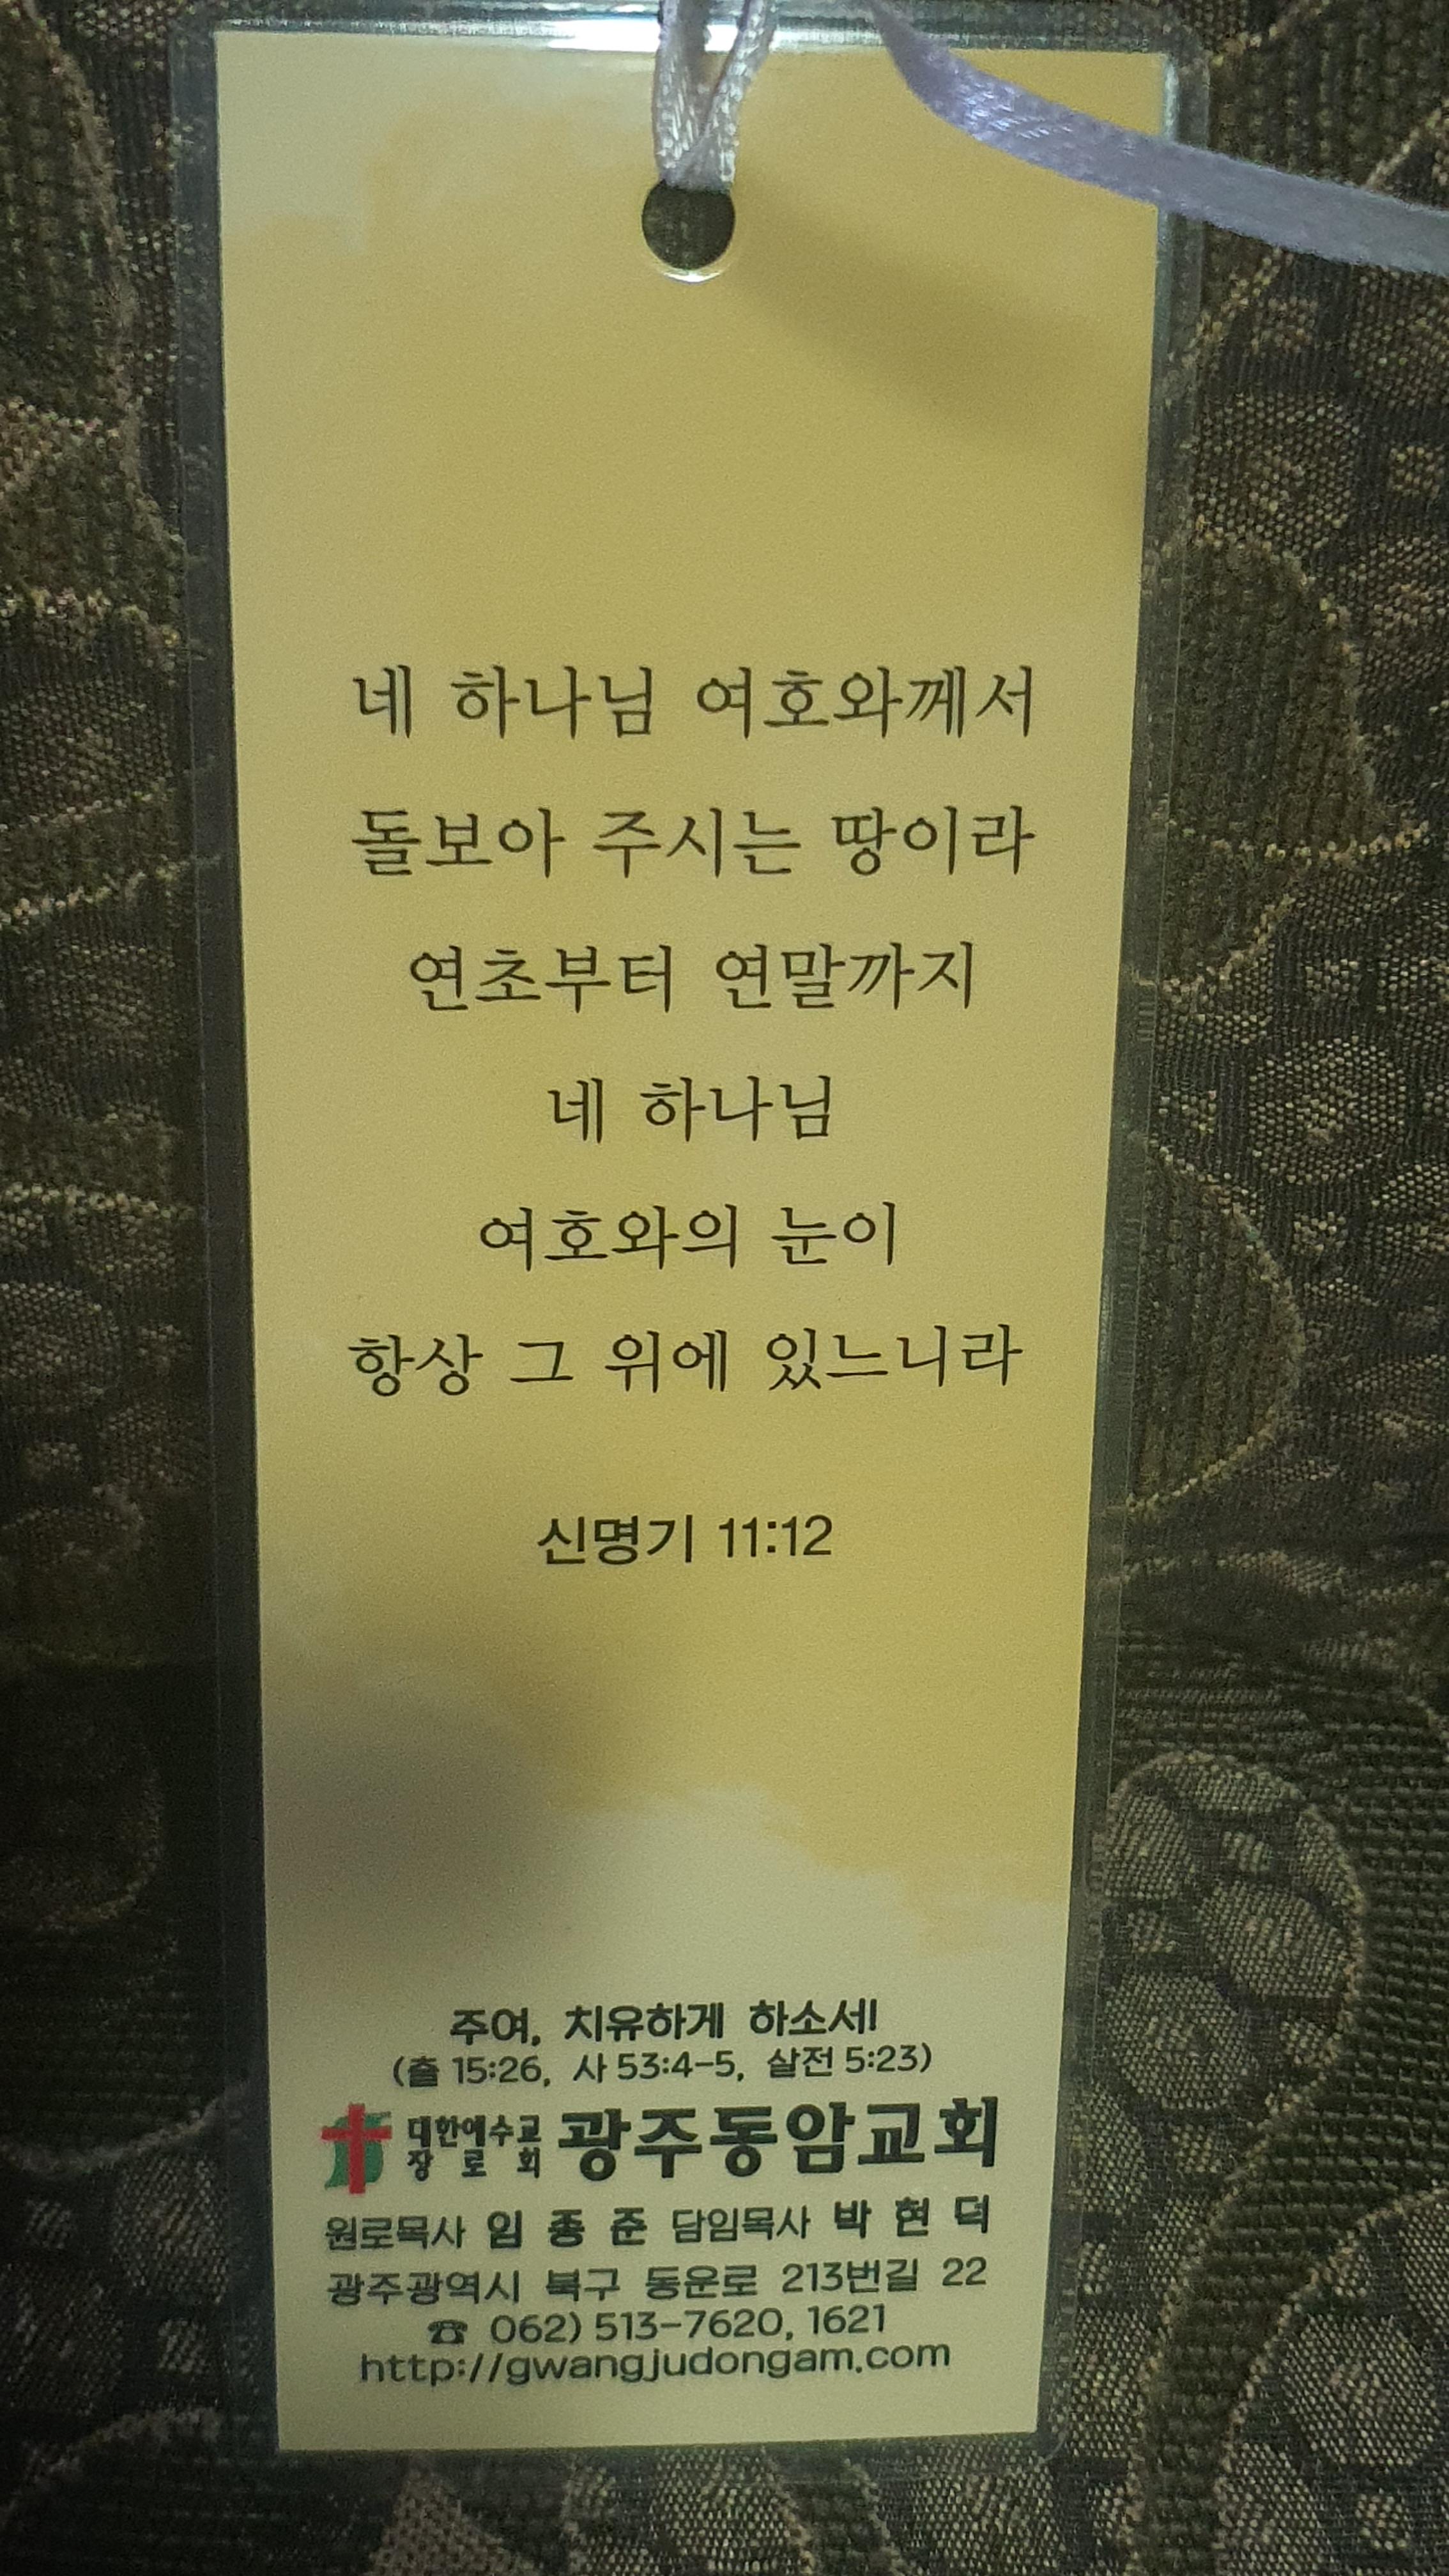 네 하나님 여호와께서
돌보아 주시는 땅이라
연초부터 연말까지
네 하나님
여호와의 눈이
항상 그 위에 있느니라
신명기 11:12
주여, 치유하게 하소서!
(출 15:26, 사 53:4-5, 살전 5:23)
대한예수교
장로회
광주동암교회
원로목사 임 종 준 담임목사 박 현 덕
광주광역시 북구 동운로 213번길 22
☎ 062) 513-7620, 1621
http://gwangjudongam.com